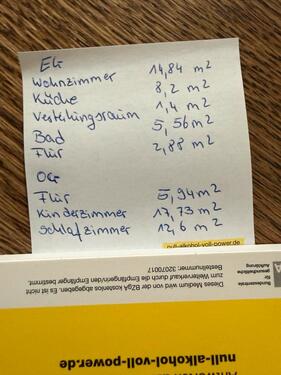 EG
Wohnzimmer 14,84 m²
Küche 8,2 m²
Verteilungsraum 1,4 m²
Bad 5,56 m²
Flur 2,88 m²
OG
Flur 5,94 m²
Kinderzimmer 17,73 m²
Schlafzimmer 12,6 m²
null-alkohol-voll-power.de
Bundeszentrale
für
gesundheitliche
Aufklärung
Dieses Medium wird von der BZgA kostenlos abgegeben. Es ist nicht
zum Weiterverkauf durch die Empfängerin/den Empfänger bestimmt.
Bestellnummer: 32070017
null-alkohol-voll-power.de